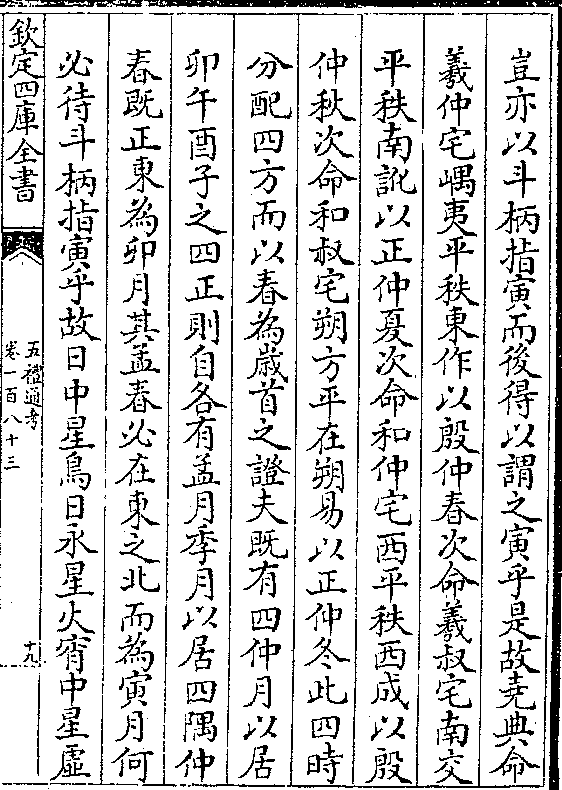 豈亦以斗柄指寅而後得以謂之寅乎是故堯典命
羲仲宅嵎夷平秩東作以殷仲春次命羲叔宅南交
平秩南訛以正仲夏次命和仲宅西平秩西成以殷
仲秋次命和叔宅朔方平在朔易以正仲冬此四時
分配四方而以春為歲首之證夫既有四仲月以居
卯午酉子之四正則自各有孟月季月以居四隅仲
春既正東為卯月其孟春必在東之北而為寅月何
必待斗柄指寅乎故日中星鳥日永星火宵中星虛
欽定四庫全書
五禮通考
卷一百八十三
十九